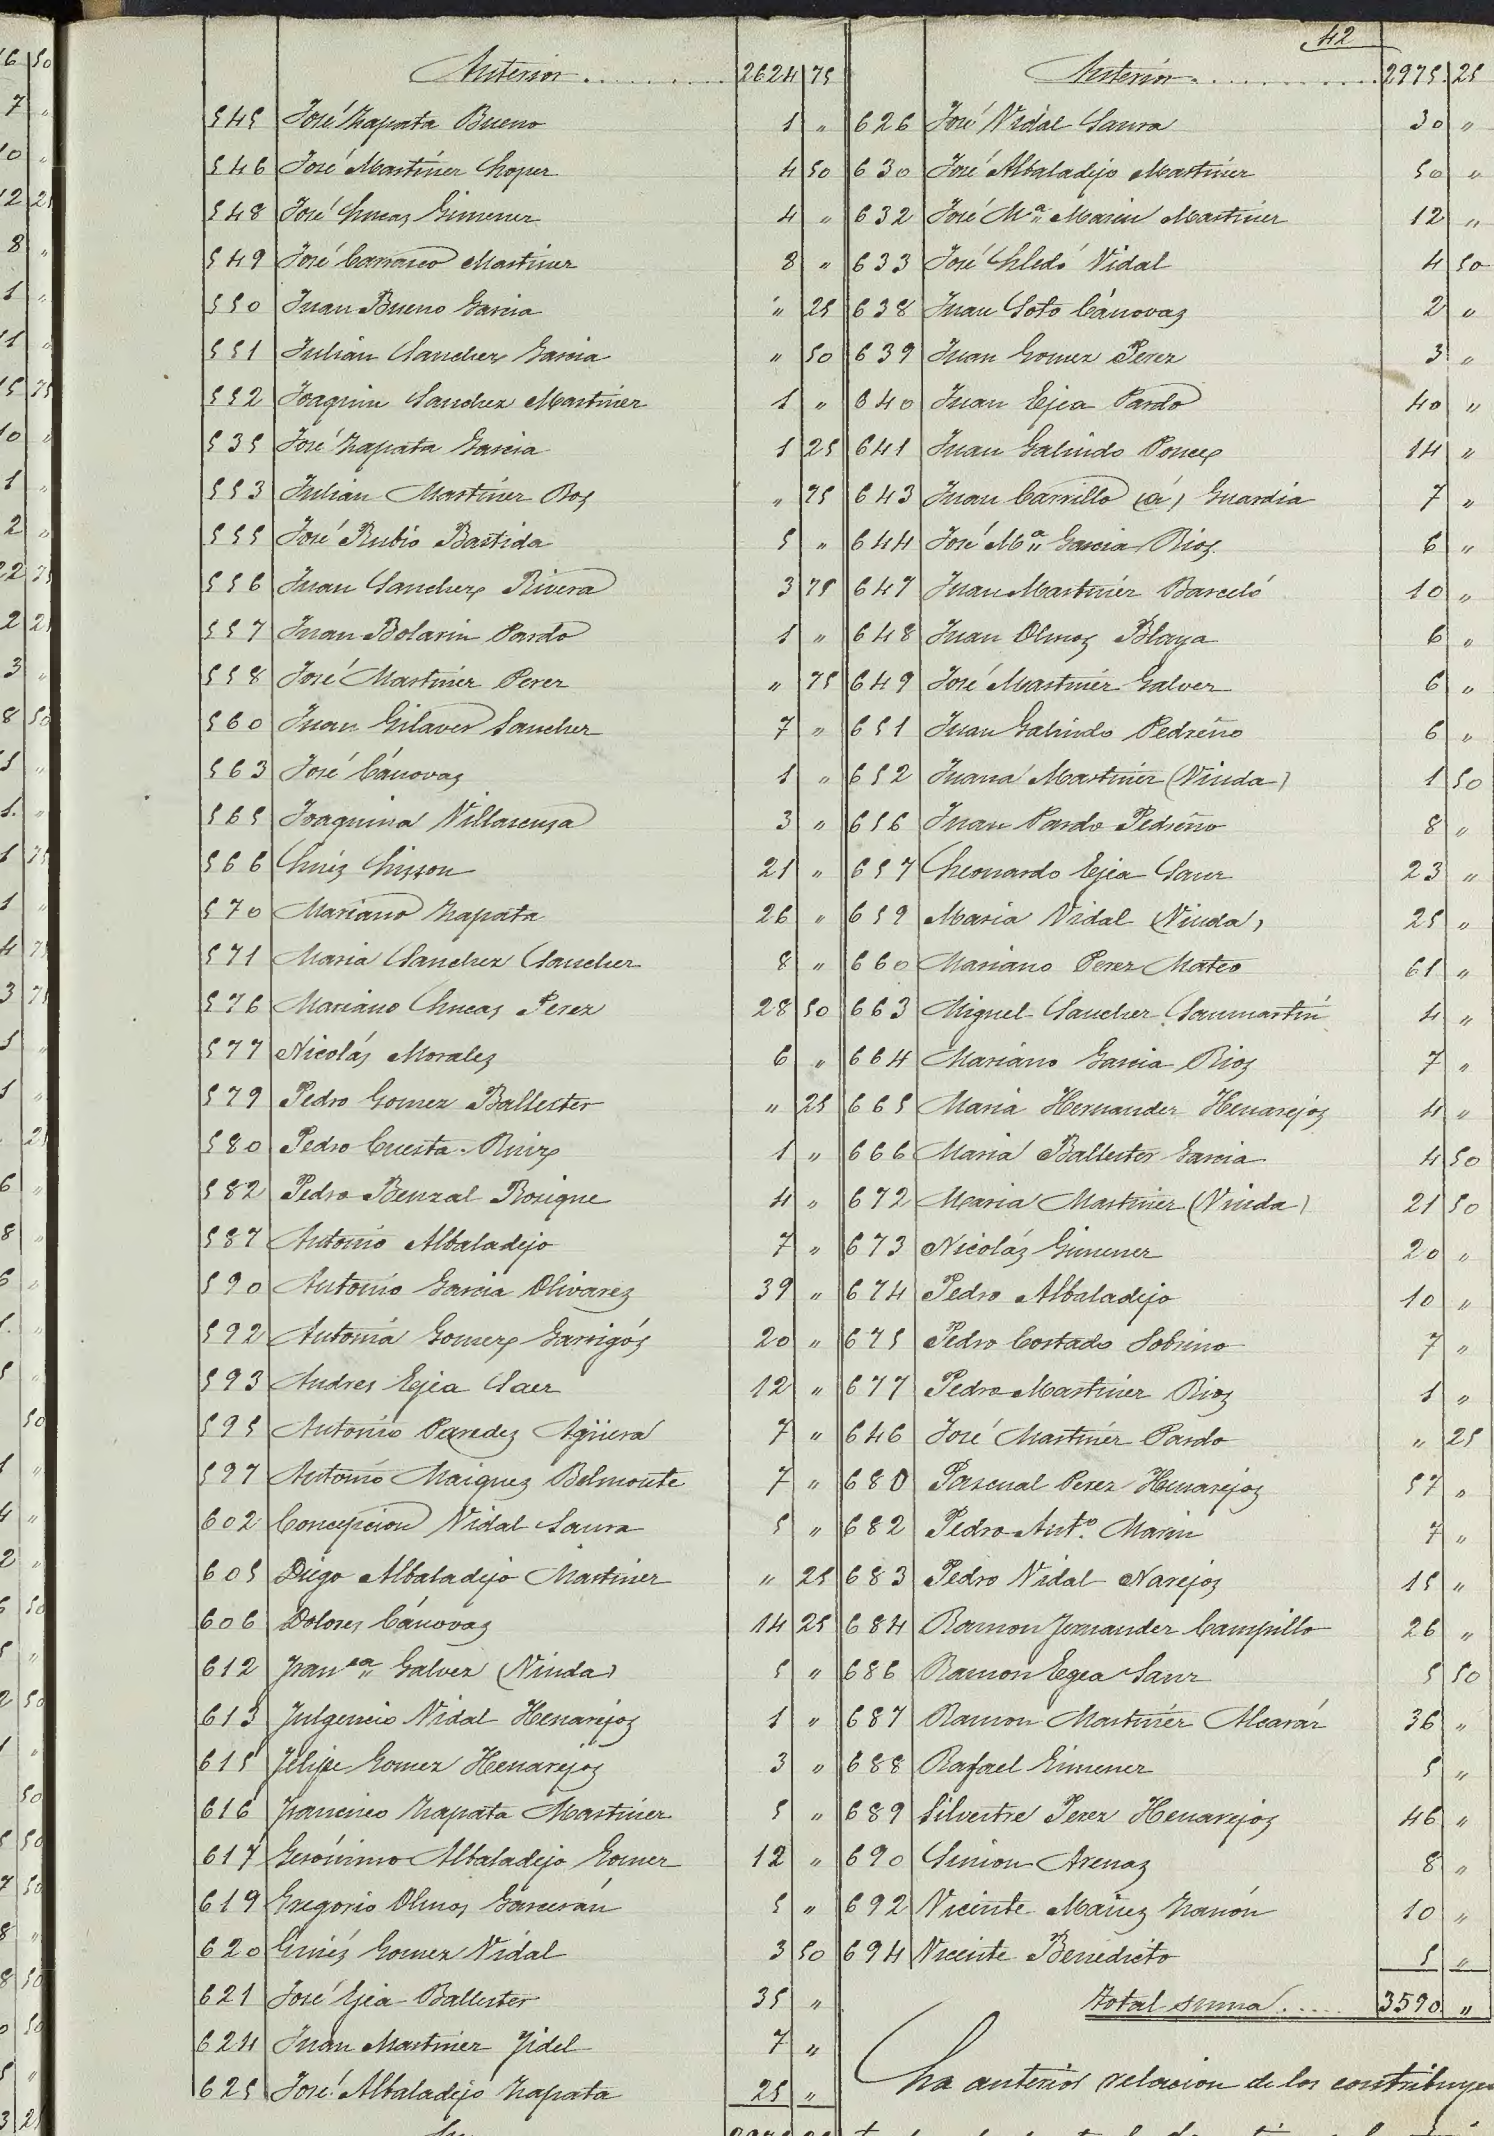 42
Anterior 2624 75
545 José Zapata Bueno 1 "
546 José Martinez Lopez 4 50
548 José Lucas Gimenez 4 "
549 José Carrasco Martinez 8 "
550 Juan Bueno Garcia " 25
551 Julián Sanchez Garcia " 50
552 Joaquin Sanchez Martinez 1 "
535 José Zapata Garcia 1 25
553 Julián Martinez Ros " 75
555 José Rubio Bastida 5 "
556 Juan Sanchez Rivera 3 75
557 Juan Bolarin Pardo 1 "
558 José Martinez Perez " 75
560 Juan Gilaver Sanchez 7 "
563 José Cánovas 1 "
565 Joaquina Villaescusa 3 "
566 Luis Lisson 21 "
570 Mariano Zapata 26 "
571 Maria Sanchez Sanchez 8 "
576 Mariano Lucas Perez 28 50
577 Nicolás Morales 6 "
579 Pedro Gomez Ballester " 25
580 Pedro Cuesta Ruiz 1 "
582 Pedro Benzal Rosique 4 "
587 Antonio Albaladejo 7 "
590 Antonio Garcia Olivarez 39 "
592 Antonia Gomez Garrigós 20 "
593 Andres Egea Saez 12 "
595 Antonio Paredes Agüera 7 "
597 Antonio Maiquez Belmonte 7 "
602 Concepcion Vidal Saura 5 "
605 Diego Albaladejo Martinez " 25
606 Dolores Cánovas 14 25
612 Franca Galvez (Viuda) 5 "
613 Fulgencio Vidal Henarejos 1 "
615 Felipe Gomez Henarejos 3 "
616 Francisco Zapata Martinez 5 "
617 Gerónimo Albaladejo Gomez 12 "
619 Gregorio Olmos Garcerán 5 "
620 Ginés Gomez Vidal 3 50
621 José Egea Ballester 35 "
624 Juan Martinez Fidel 7 "
625 José Albaladejo Zapata 25 "
Anterior 2975 25
626 José Vidal Saura 30 "
630 José Albaladejo Martinez 50 "
632 José Mª Marin Martinez 12 "
633 José Lledó Vidal 4 50
638 Juan Soto Cánovas 2 "
639 Juan Gomez Perez 3 "
640 Juan Egea Pardo 40 "
641 Juan Galindo Ponce 14 "
643 Juan Carrillo (á) Guardia 7 "
644 José Mª Garcia Rios 6 "
647 Juan Martinez Barceló 10 "
648 Juan Olmos Blaya 6 "
649 José Martinez Galvez 6 "
651 Juan Galindo Pedreño 6 "
652 Juana Martinez (Viuda) 1 50
656 Juan Pardo Pedreño 8 "
657 Leonardo Egea Sanz 23 "
659 Maria Vidal (Viuda) 25 "
660 Mariano Perez Mateo 61 "
663 Miguel Sanchez Sanmartin 4 "
664 Mariano Garcia Rios 7 "
665 Maria Hernandez Henarejos 4 "
666 Maria Ballester Garcia 4 50
672 Maria Martinez (Viuda) 21 50
673 Nicolás Gimenez 20 "
674 Pedro Albaladejo 10 "
675 Pedro Cortado Sobrino 7 "
677 Pedro Martinez Rios 1 "
646 José Martinez Pardo " 25
680 Pascual Perez Henarejos 57 "
682 Pedro Antº Marin 7 "
683 Pedro Vidal Narejos 15 "
684 Ramon Fernandez Campillo 26 "
686 Ramon Egea Sanz 5 50
687 Ramon Martinez Alcaráz 36 "
688 Rafael Gimenez 5 "
689 Silvestre Perez Henarejos 46 "
690 Simon Arenas 8 "
692 Vicente Maiq Zanón 10 "
694 Vicente Benedicto 5 "
total suma 3590 "
La anterior relacion de los contribuyen